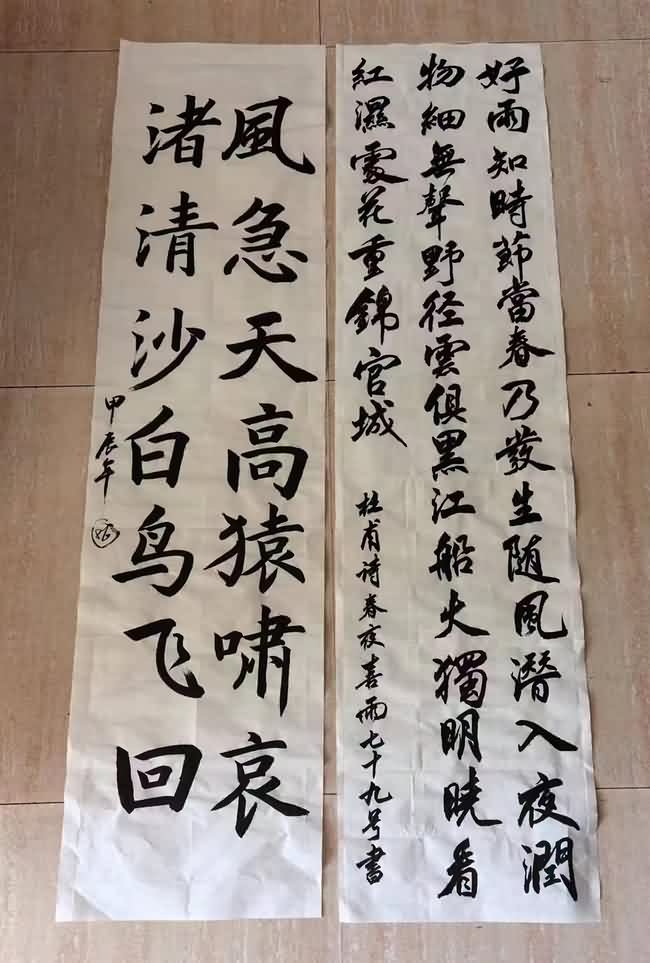 好雨知時節當春乃發生随風潛入夜潤
物細無聲野径雲俱黑江船火獨明曉看
紅濕處花重錦官城 杜甫詩春夜喜雨七十九号書
風急天高猿啸哀
渚清沙白鸟飞回
甲辰年